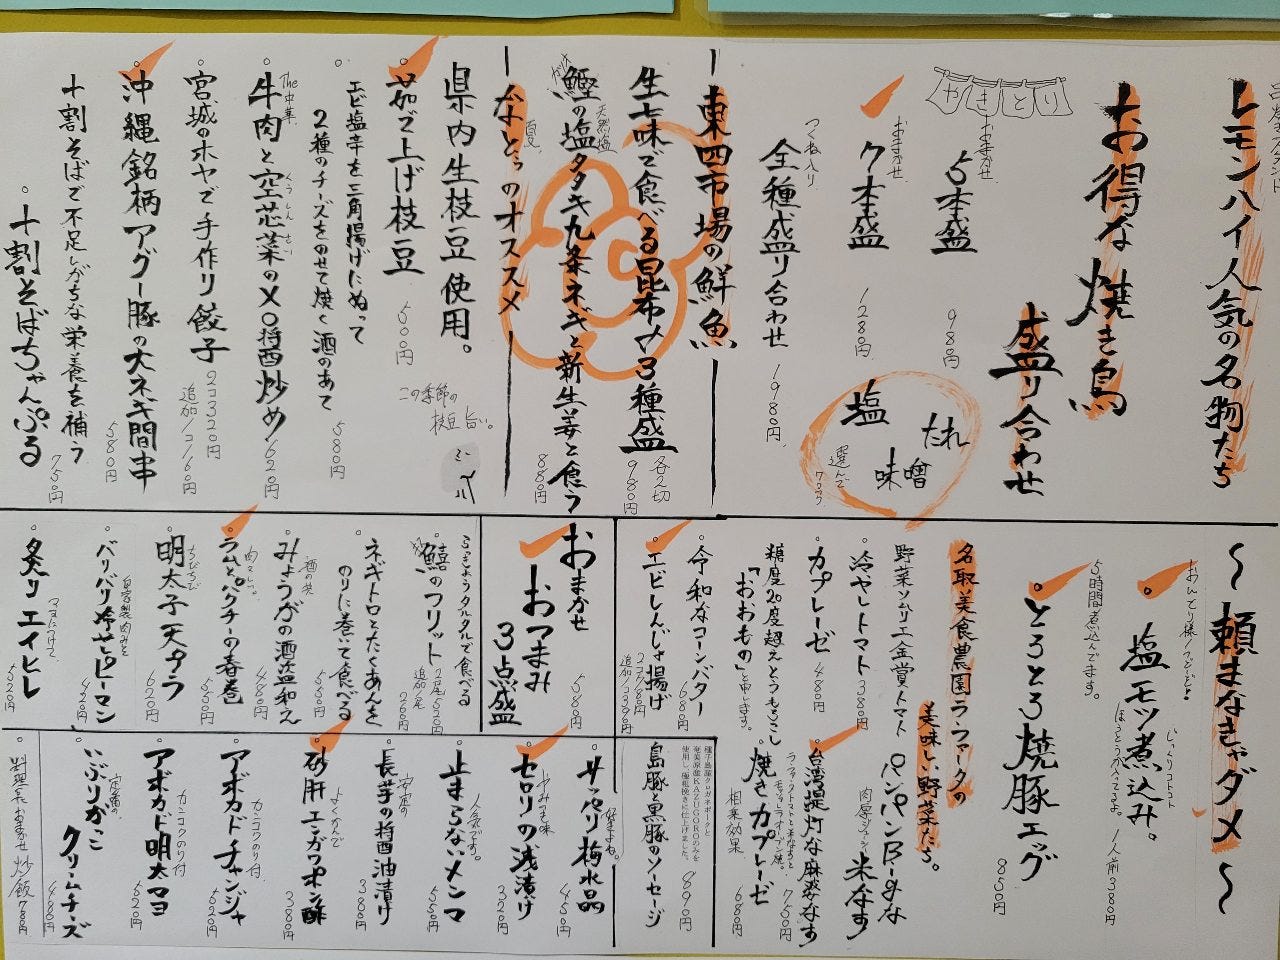 レモンハイ人気の名物たち
お得な焼き鳥
盛り合わせ
やきとり
おまかせ
5本盛
980円
おまかせ
7本盛
1280円
つくね入り
全種盛り合わせ
1980円
塩
たれ
味噌
選んで
東四市場の鮮魚
生七味で食べる昆布〆3種盛
各2切
980円
天然塩
鰹の塩タタキ九条ネギと新生姜と食う
880円
なとぅのオススメ
夏
県内生枝豆使用。
茹で上げ枝豆
500円
この季節の
枝豆旨い。
エビ塩辛を三角揚げにぬって
2種のチーズをのせて焼く酒のあて
580円
The中華
牛肉と空芯菜のXO醤炒め
くうしんさい
620円
宮城のホヤで手作り餃子
2コ320円
追加1コ160円
沖縄銘柄アグー豚の大ネギ間串
580円
十割そばで不足しがちな栄養を補う
十割そばちゃんぷる
750円
〜頼まなきゃダメ〜
塩モツ煮込み。
じっくりコトコト
1人前380円
5時間煮込んでます。
とろとろ焼豚エッグ
850円
名取美食農園ラファークの
美味しい野菜たち。
パンパンB-gな
米なす
肉厚ジューシー
野菜ソムリエ金賞トマト
冷やしトマト
380円
台湾提灯な麻婆なす
750円
カプレーゼ
480円
焼きカプレーゼ
680円
相乗効果
糖度20度超えとうもろこし
「おおもの」と申します。
令和なコーンバター
680円
エビしんじょ揚げ
2コ
追加1コ
種子島産クロガネポークと
奄美原産KAZUGOROのみを
使用し、極粗挽きに仕上げました。
島豚と黒豚のソーセージ
890円
おまかせ
おつまみ
3点盛
580円
らっきょうタルタルで食べる
鱚のフリット
2尾520円
追加1尾
ネギトロとたくあんを
のりに巻いて食べる
550円
みょうがの酒盗和え
480円
ラムとパクチーの春巻
550円
ちびちび
明太子天プラ
620円
自家製肉みそ
バリバリ冷せピーマン
420円
マヨにつけて
炙りエイヒレ
520円
サッパリ梅水晶
450円
セロリの浅漬け
320円
人気です。
止まらないメンマ
550円
安定の
長芋の醤油漬け
380円
よくかんで
砂肝エンガワポン酢
380円
カンコクのり付
アボカドチャンジャ
520円
カンコクのり付
アボカド明太マヨ
520円
定番の
いぶりがっこ
クリームチーズ
480円
料理長おまかせ炒飯
780円